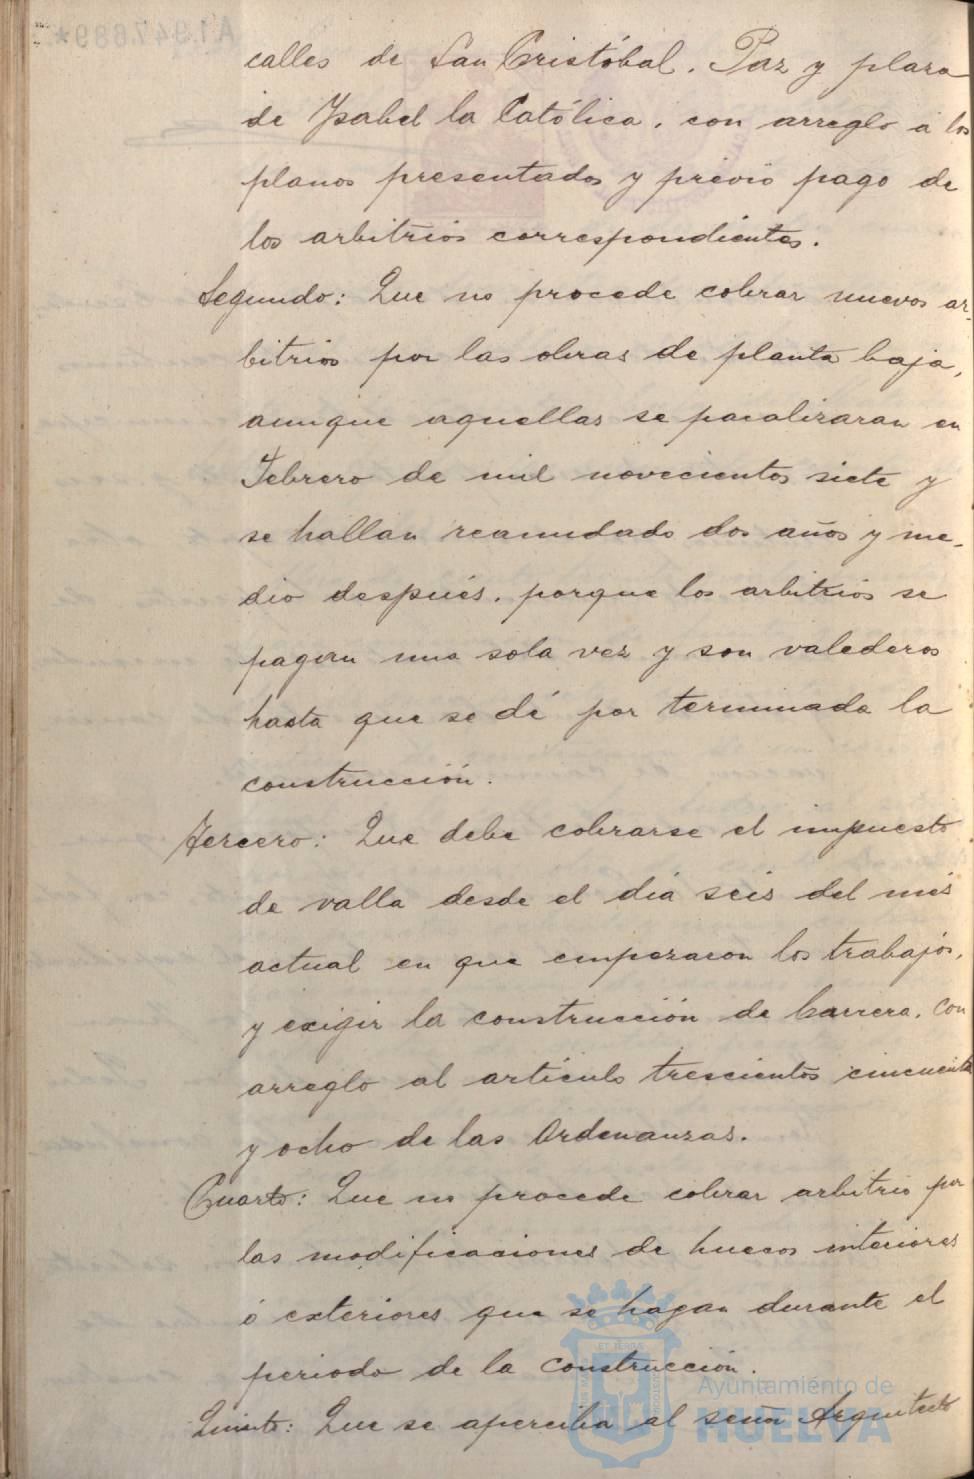 A1.947.689*
calles de San Cristóbal, Paz y plaza
de Ysabel la Católica, con arreglo á los
planos presentados y prévio pago de
los arbitrios correspondientes.
Segundo: Que no procede cobrar nuevos ar-
bitrios por las obras de planta baja,
aunque aquellas se paralizaran en
Febrero de mil novecientos siete y
se hallan reanudado dos años y me-
dio después, porque los arbitrios se
pagan una sola vez y son valederos
hasta que se dé por terminada la
construcción.
Tercero: Que debe cobrarse el impuesto
de valla desde el día seis del més
actual en que empezaron los trabajos,
y exigir la construcción de barrera, con
arreglo al artículo trescientos cincuenta
y ocho de las Ordenanzas.
Cuarto: Que no procede cobrar arbitrio por
las modificaciones de huecos interiores
ó exteriores que se hagan durante el
periodo de la construcción.
Quinto: Que se aperciba al señor Arquitecto
Ayuntamiento de
HUELVA